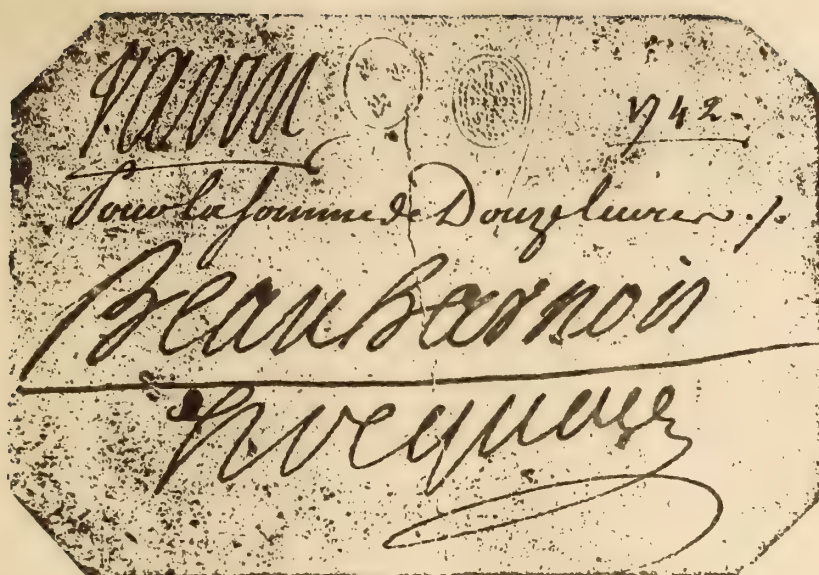 Varin 1742
Pour la somme de Douze liures
Beauharnois
hocquart